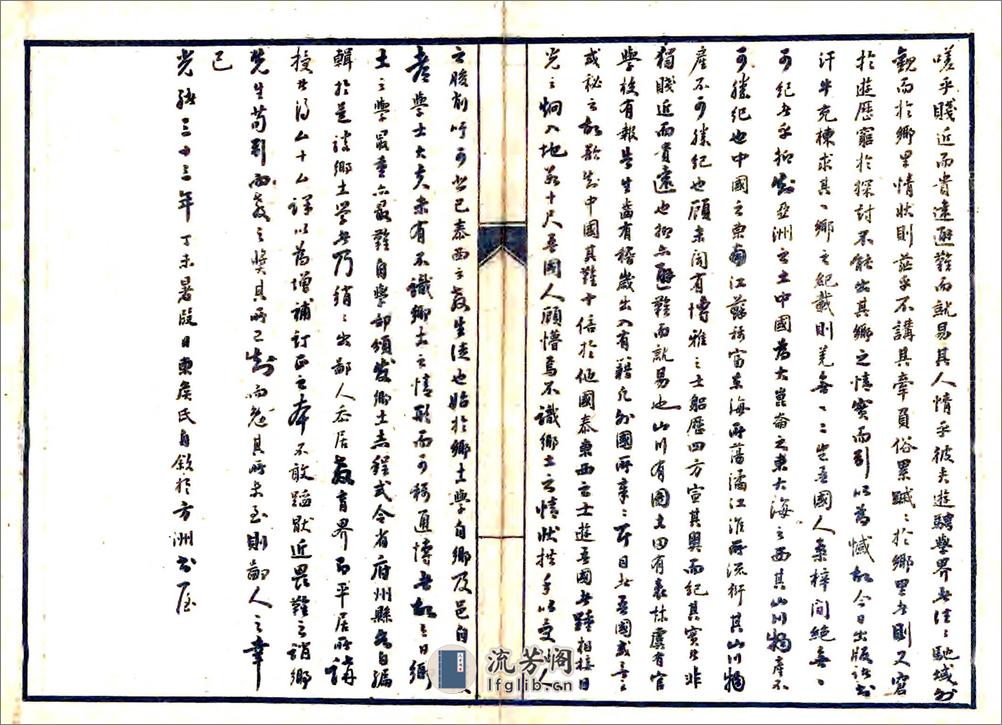 嗟乎賤近而貴遠避難而就易其人情乎彼夫遊騁學界者往〻馳域外
觀而於鄉里情狀則茫乎不講其牽員俗累蹴〻於鄉里者則又窘
於遊歷窮於探討不能出其鄉之情實而引以為憾故今日出版訪書
汗牛充棟求其一鄉之紀載則羌無一二豈吾國人桑梓間絕無一
可紀者乎抑亞洲之土中國為大崑崙之東大海之西其山川物產不
可勝紀也中國之東南江蘇稱富東海所蕩潏江淮所流衍其山川物
產不可勝紀也顧未聞有博雅之士躬歷四方宣其奧而紀其實者非
獨賤近而貴遠也抑亦避難而就易也山川有圖土田有表林虞有官
學校有報告生齒有稽歲出入有籍凡外國所章〻耳目者吾國或無之
或祕之故歎中國其難十倍於他國泰東西之士遊吾國者踵相接目
光之炯入地若干尺吾國人顧懵焉不識鄉土之情狀拱手以受人
之朘削吁可悲已泰西之教生徒也始於鄉土學自鄉及邑自
老學士大夫未有不識鄉土之情形而可稱通博者故之日鄉
土之學最重亦最難自學部頒發鄉土志程式令省府州縣各自編
輯於是談鄉土學者乃稍〻出鄙人忝居教育界而平居所講
授者得厶十厶課以為增補訂正之本不敢蹈厭近畏難之誚鄉
先生苟引而教之獎其所已而恕其所未至則鄙人之幸
已
光緒三十三年丁未暑假日東侯氏自敘於方洲書屋
流芳閣
lfglib.cn